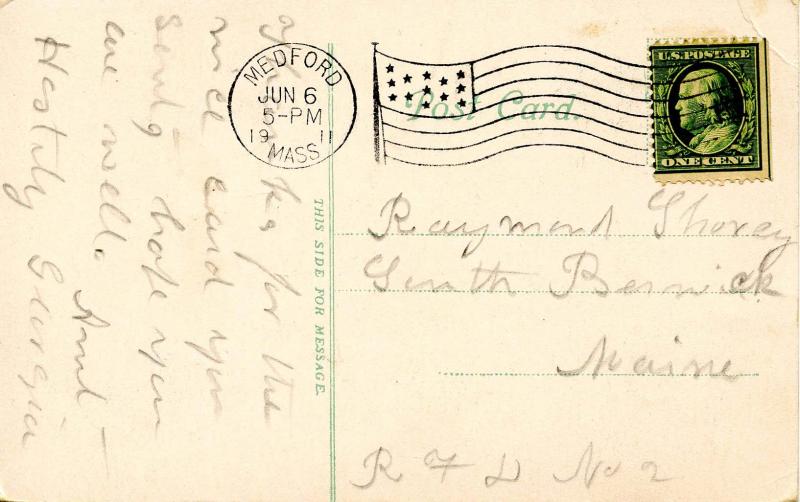 MEDFORD
JUN 6
5-PM
19 11
MASS.
U.S. POSTAGE
ONE CENT
Post Card.
THIS SIDE FOR MESSAGE.
Raymond Shorey
South Berwick
Maine
R F D No 2
for the
nice card you
sent hope you
are well. Aunt
Hastily Georgia